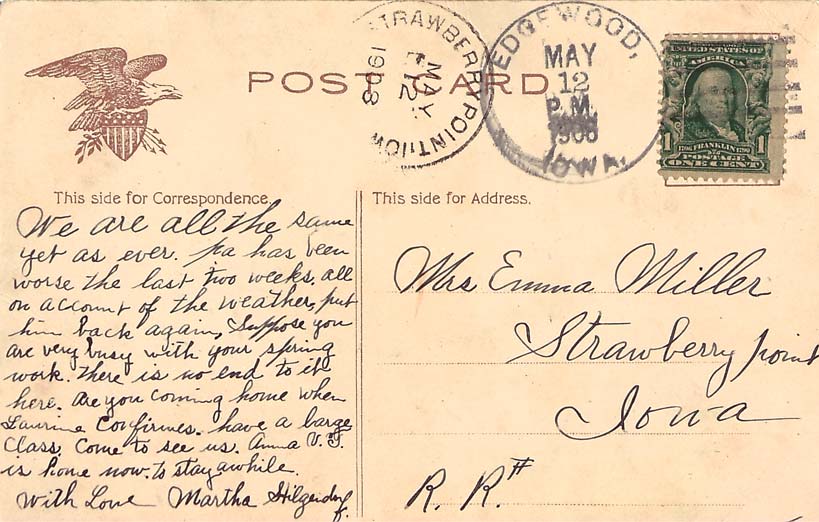 STRAWBERRY POINT, IOW
MAY
12
1908
EDGEWOOD,
MAY
12
P.M.
1908
IOWA.
POST CARD
UNITED STATES OF
AMERICA
1 FRANKLIN 1
POSTAGE
ONE CENT
This side for Correspondence.
We are all the same
yet as ever. pa has been
worse the last two weeks. all
on account of the weather, put
him back again, Suppose you
are very busy with your spring
work. There is no end to it
here. Are you coming home when
Laurine Confirmes. have a large
Class. Come to see us. Anna V. T.
is home now. to stay awhile.
With Love Martha Hilgendorf.
This side for Address.
Mrs Emma Miller
Strawberry point
Iowa
R. R. #